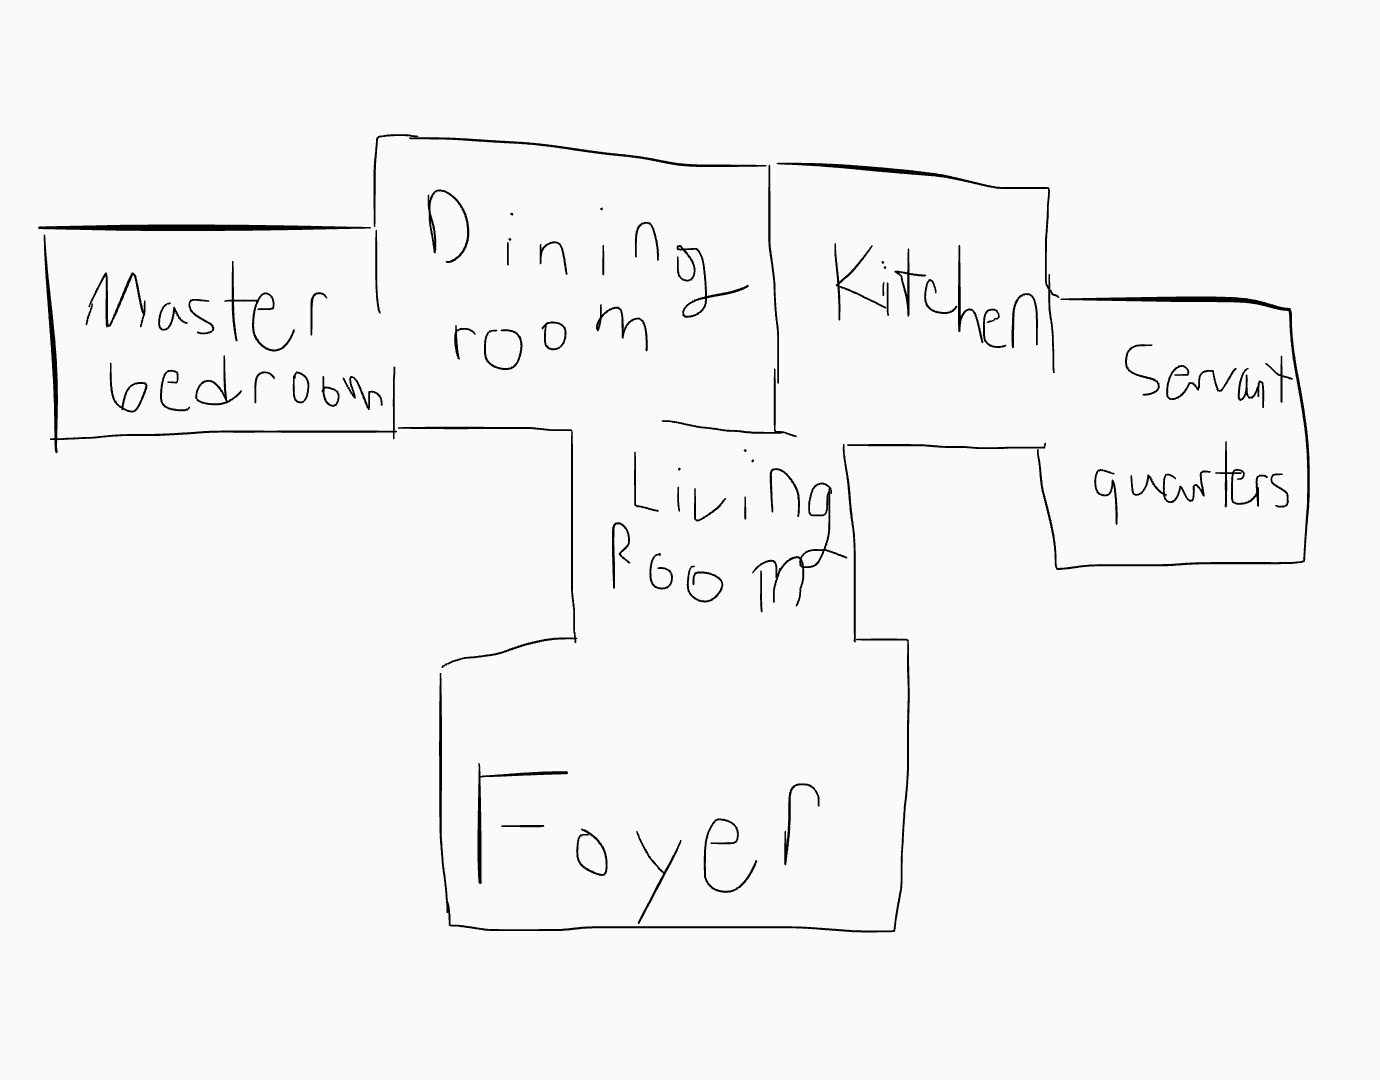 Master
bedroom
Dining
room
Kitchen
Servant
quarters
Living
Room
Foyer